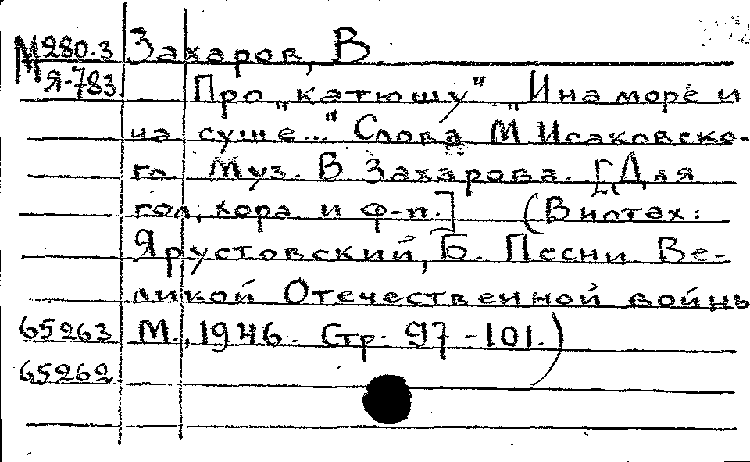 М 280.3 Захаров, В.
Я-783 Про „катюшу". „И на море и
на суше..." Слова М. Исаковско-
го. Муз. В. Захарова. [Для
гол., хора и ф-п.] (В нотах:
Ярустовский, Б. Песни Ве-
ликой Отечественной войны
65263 М., 1946. Стр. 97-101.)
65262